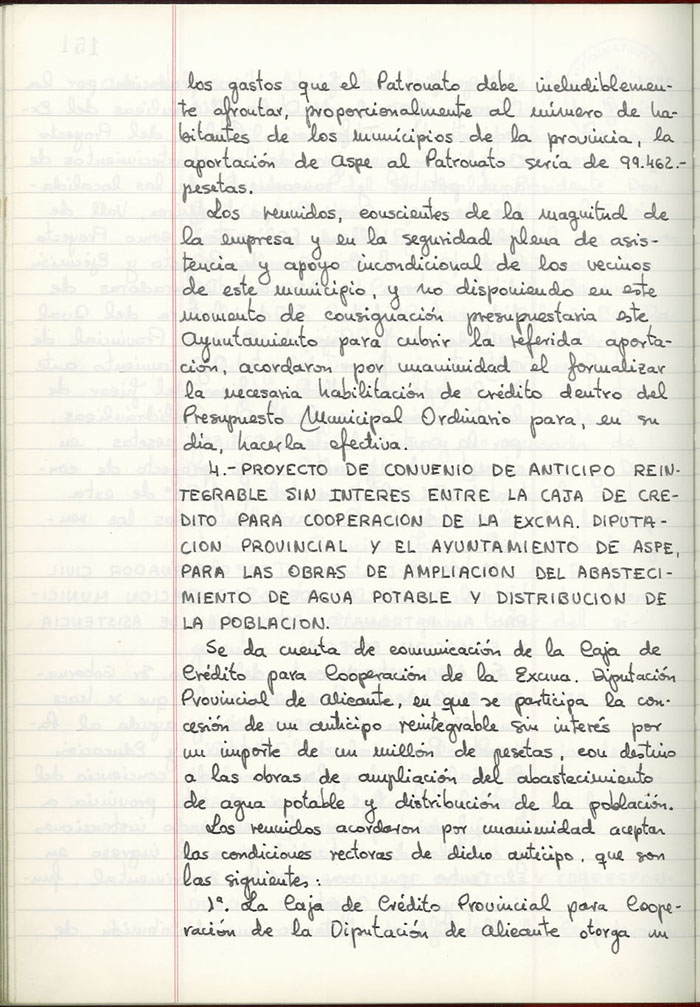 los gastos que el Patronato debe ineludiblemen-
te afrontar, proporcionalmente al número de ha-
bitantes de los municipios de la provincia, la
aportación de Aspe al Patronato sería de 99.462.-
pesetas.
Los reunidos, conscientes de la magnitud de
la empresa y en la seguridad plena de asis-
tencia y apoyo incondicional de los vecinos
de este municipio, y no disponiendo en este
momento de consignación presupuestaria este
Ayuntamiento para cubrir la referida aporta-
ción, acordaron por unanimidad el formalizar
la necesaria habilitación de crédito dentro del
Presupuesto Municipal Ordinario para, en su
día, hacerla efectiva.
4.- PROYECTO DE CONVENIO DE ANTICIPO REIN-
TEGRABLE SIN INTERES ENTRE LA CAJA DE CRE-
DITO PARA COOPERACION DE LA EXCMA. DIPUTA-
CION PROVINCIAL Y EL AYUNTAMIENTO DE ASPE,
PARA LAS OBRAS DE AMPLIACION DEL ABASTECI-
MIENTO DE AGUA POTABLE Y DISTRIBUCION DE
LA POBLACION.
Se da cuenta de comunicación de la Caja de
Crédito para Cooperación de la Excma. Diputación
Provincial de Alicante, en que se participa la con-
cesión de un anticipo reintegrable sin interés por
un importe de un millón de pesetas, con destino
a las obras de ampliación del abastecimiento
de agua potable y distribución de la población.
Los reunidos acordaron por unanimidad aceptar
las condiciones rectoras de dicho anticipo, que son
las siguientes:
1ª. La Caja de Crédito Provincial para Coope-
ración de la Diputación de Alicante otorga un